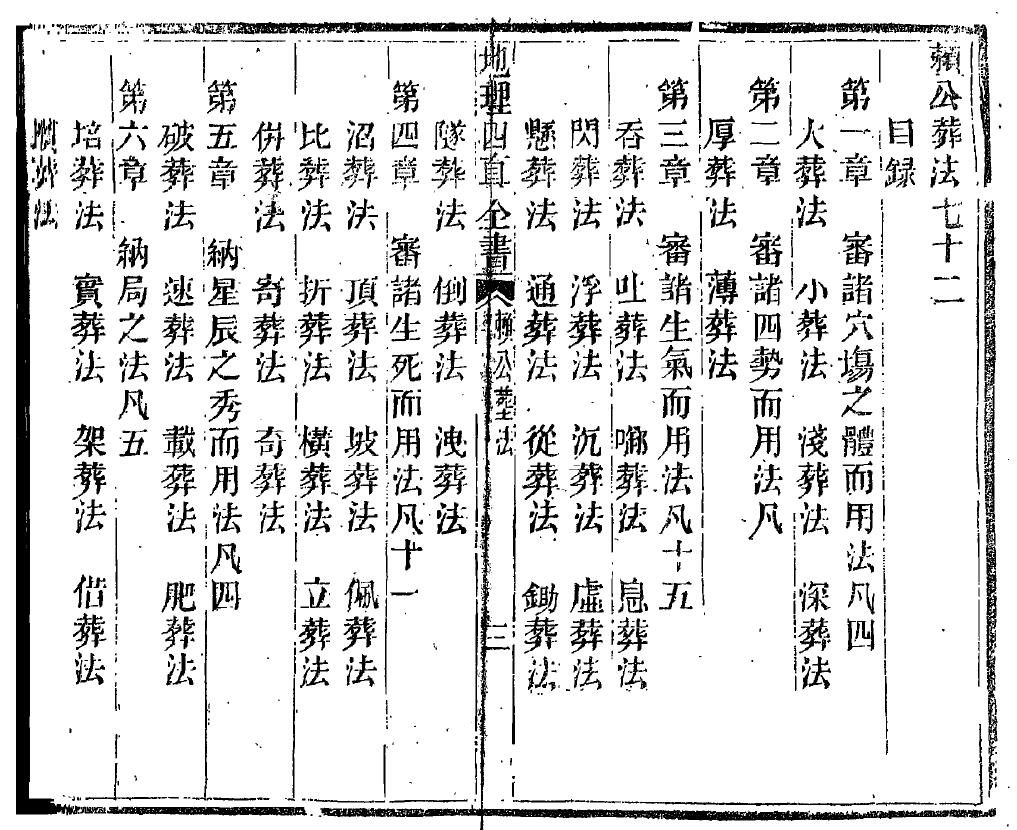 賴公葬法七十二
目録
第一章 審諸穴塲之體而用法凡四
大葬法 小葬法 淺葬法 深葬法
第二章 審諸四勢而用法凡
厚葬法 薄葬法
第三章 審諸生氣而用法凡十五
吞葬法 吐葬法 葬法 息葬法
閃葬法 浮葬法 沉葬法 虛葬法
懸葬法 通葬法 從葬法 鋤葬法
地理四直全書 賴公葬法 三
隧葬法 倒葬法 洩葬法
第四章 審諸生死而用法凡十一
沼葬法 頂葬法 坡葬法 佩葬法
比葬法 折葬法 橫葬法 立葬法
併葬法 寄葬法 奇葬法
第五章 納星辰之秀而用法凡四
破葬法 速葬法 載葬法 肥葬法
第六章 納局之法凡五
培葬法 實葬法 架葬法 借葬法
葬法